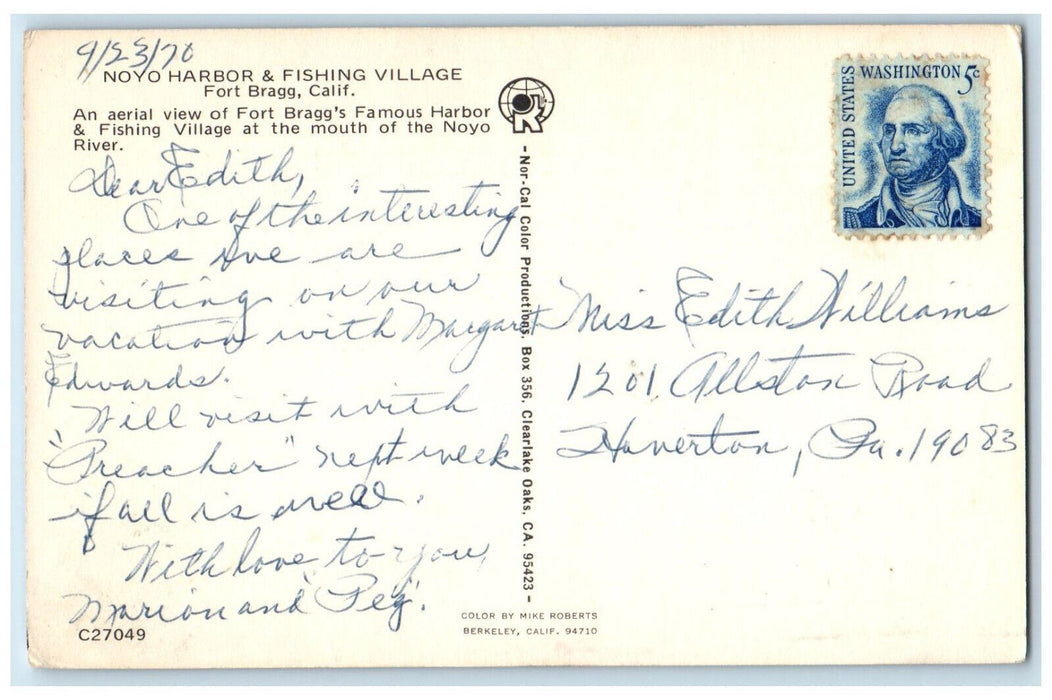 9/23/70
NOYO HARBOR & FISHING VILLAGE
Fort Bragg, Calif.
An aerial view of Fort Bragg's Famous Harbor
& Fishing Village at the mouth of the Noyo
River.
Dear Edith,
One of the interesting
places we are
visiting on our
vacation with Margaret
Edwards.
Will visit with
"Preacher" next week
if all is well.
With love to you,
Marion and "Peg".
C27049
- Nor-Cal Color Productions, Box 356, Clearlake Oaks, CA. 95423 -
COLOR BY MIKE ROBERTS
BERKELEY, CALIF. 94710
UNITED STATES
WASHINGTON 5c
Miss Edith Williams
1201 Allston Road
Haverton, Pa. 19083